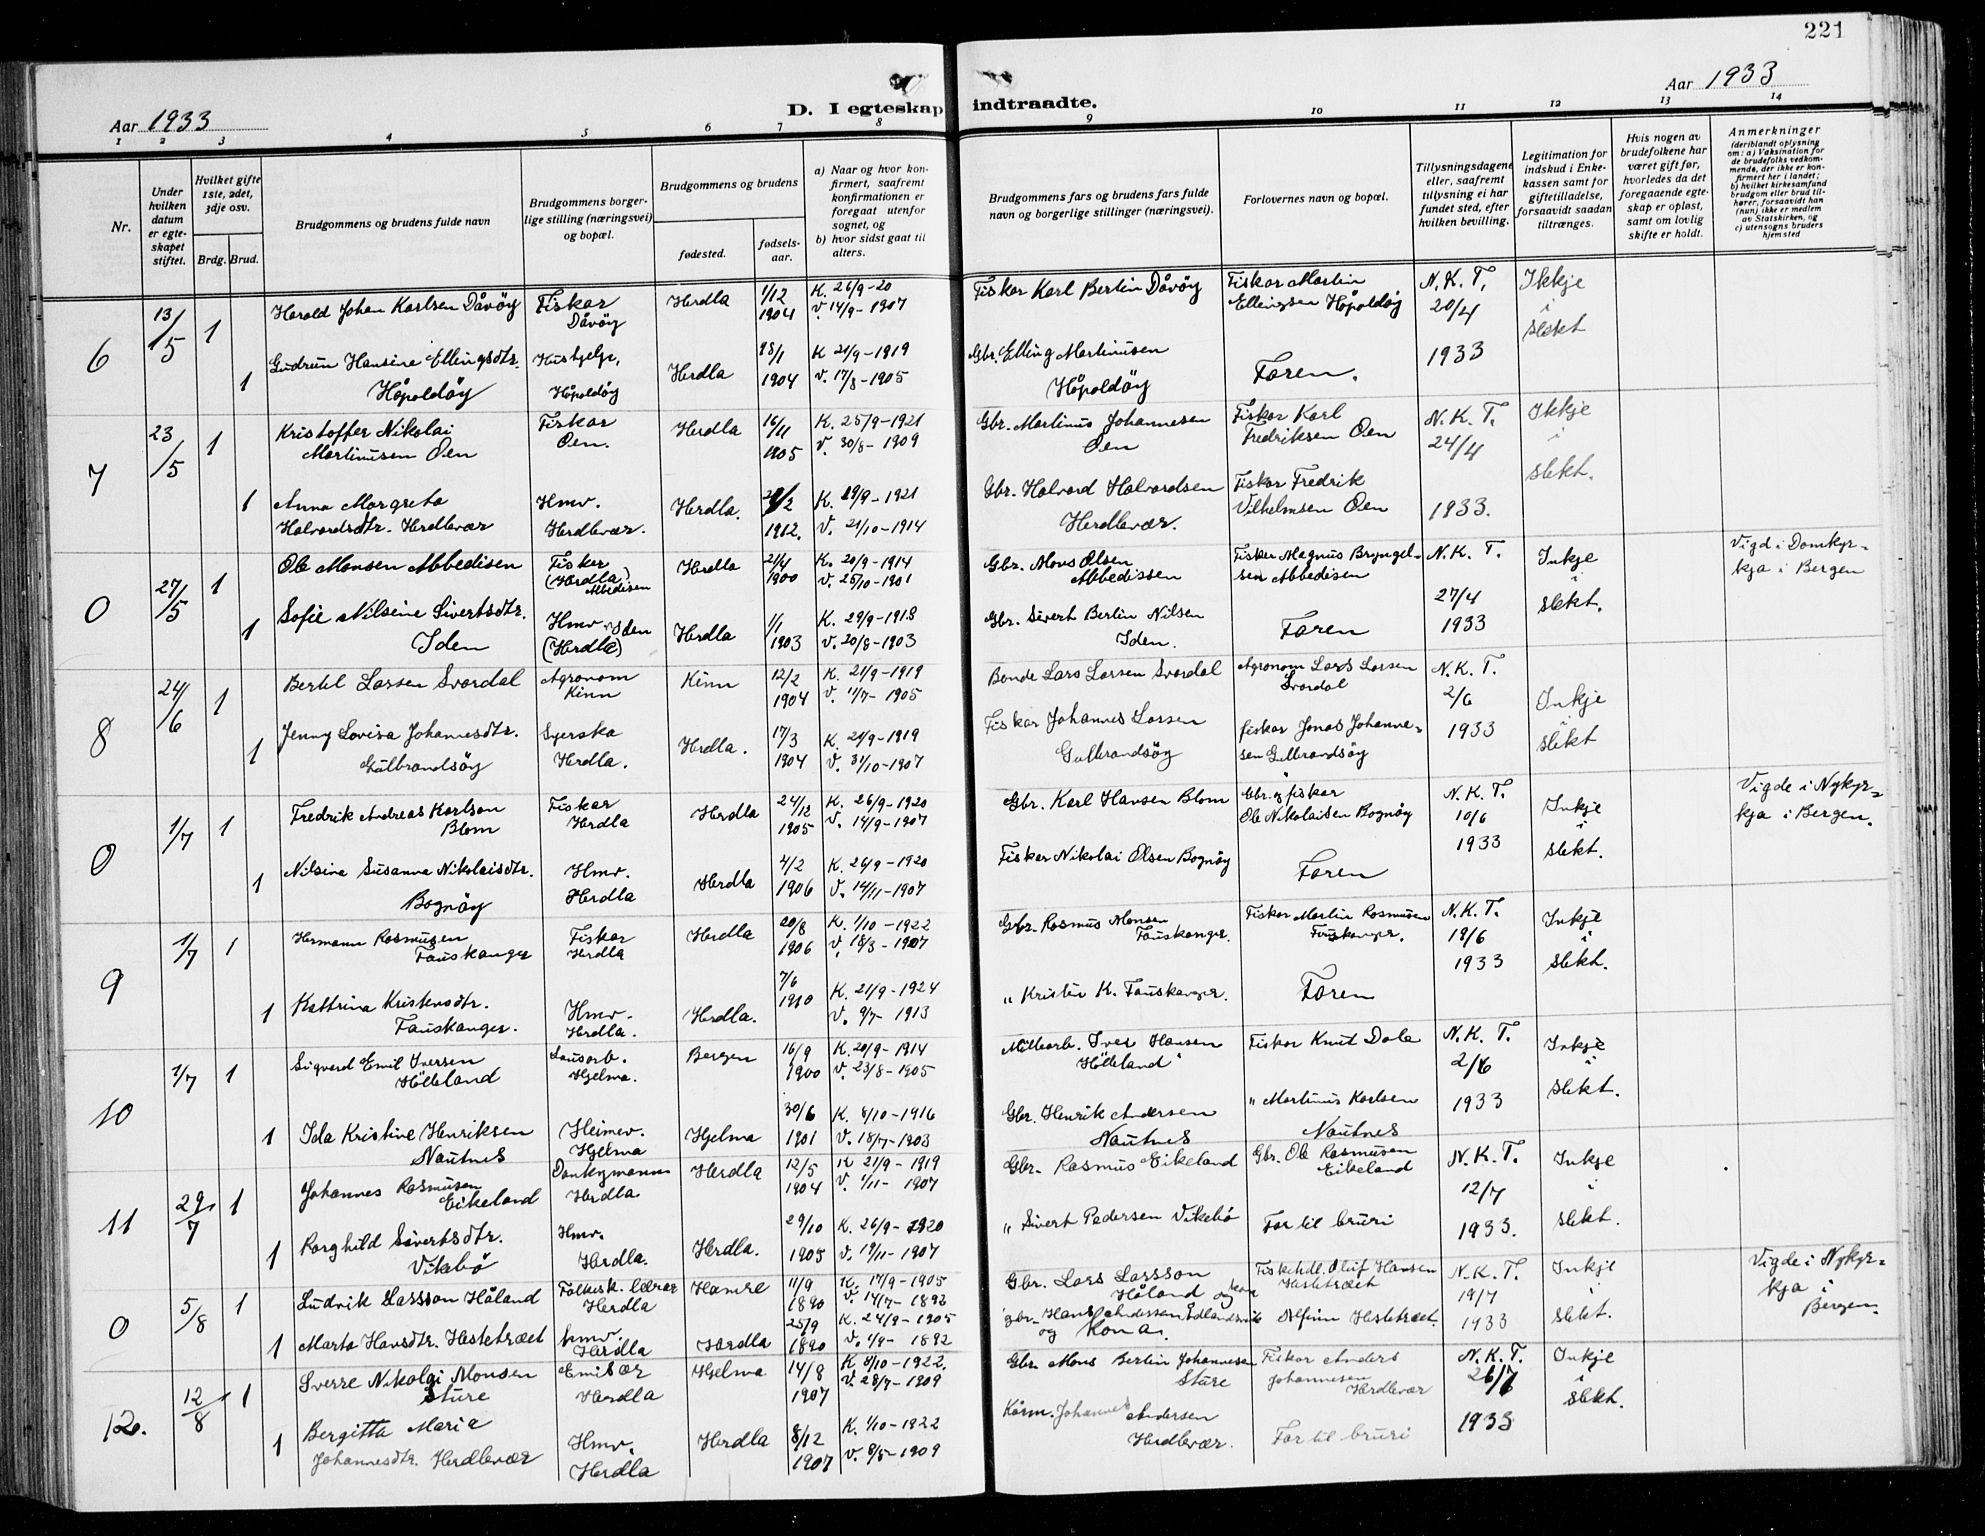 221
Aar 1933
D. I egteskap indtraadte.
Aar 1933
1 2 3 4 5 6 7 8 9 10 11 12 13 14
Nr.
Under hvilken datum er egteskapet stiftet.
Hvilket gifte 1ste, 2det, 3dje osv.
Brdg. Brud.
Brudgommens og brudens fulde navn
Brudgommens borgerlige stilling (næringsvei) og bopæl.
Brudgommens og brudens
fødested.
fødselsaar.
a) Naar og hvor konfirmert, saafremt konfirmationen er foregaat utenfor sognet, og
b) hvor sidst gaat til alters.
Brudgommens fars og brudens fars fulde navn og borgerlige stillinger (næringsvei).
Forlovernes navn og bopæl.
Tillysningsdagene eller, saafremt tillysning ei har fundet sted, efter hvilken bevilling.
Legitimation for indskud i Enkekassen samt for giftetilladelse, forsaavidt saadan tiltrænges.
Hvis nogen av brudefolkene har været gift før, hvorledes da det foregaaende egteskap er opløst, samt om lovlig skifte er holdt.
Anmerkninger (deriblandt oplysning om: a) Vaksination for de brudefolks vedkommende, der ikke er konfirmert her i landet; b) hvilket kirkesamfund brudgom eller brud tilhører, forsaavidt han (hun) ikke er medlem av Statskirken, og c) utensogns bruders hjemsted
6 13/5 1 Harald Johan Karlsen Dåvöy Fiskar Dåvöy Herdla 1/12 1904 K. 26/9-20 V. 14/9-1907 Fiskar Karl Bertin Dåvöy Fiskar Martin Ellingsen Höpoldöy N. K. T. 20/4 1933 Ikkje i slekt
1 Gudrun Hansine Ellingsdtr. Höpoldöy Hushjelp, Höpoldöy Herdla 1904 K 21/9-1919 V. 17/8-1905 Gbr. Elling Martinusen Höpoldöy Faren.
7 23/5 1 Kristoffer Nikolai Martinusen Öen Fiskar Öen. Herdla 16/11 1905 K. 25/9-1921 V. 30/8-1909 Gbr. Martinus Johannesen Öen Fiskar Karl Fredriksen Öen N. K. T. 24/4 1933. Ikkje i slekt.
1 Anna Margreta Halvordsdtr. Herdlevær Hmv. Herdlevær. Herdla. 1912. K. 29/9-1921 V. 21/10-1914 Gbr. Halvord Halvordsen Herdlevær. Fiskar Fredrik Vilhelmsen Öen
0 27/5 1 Ole Monsen Abbedisen Fisker (Herdla) Abbedisen Herdla 21/4 1900 K. 20/9-1914 V. 25/10-1901 Gbr. Mons Olsen Abbedissen Fisker Magnus Bryngelsen Abbedisen N. K. T. 27/4 1933 Inkje i slekt. Vigd i Domkyrkja i Bergen
1 Sofie Nilsine Sivertsdtr. Iden Hmv. Iden (Herdla) Herdla 1/1 1903 K. 29/9-1918 V. 20/8-1903 Gbr. Sivert Bertin Nilsen Iden. Faren
8 24/6 1 Bertel Larsen Svardal Agronom Kinn Kinn 12/2 1904 K. 21/9-1919 V. 11/7-1905 Bonde Lars Larsen Svardal Agronom Lars Larsen Svardal N. K. T. 2/6 1933 Inkje i slekt
1 Jenny Lovisa Johannesdtr. Gulbrandsöy Syerska Herdla. Herdla. 17/3 1904 K. 21/9-1919 V. 31/10-1907 Fiskar Johannes Larsen Gulbrandsöy fiskar Jonas Johannesen Gulbrandsöy
0 1/7 1 Fredrik Andreas Karlson Blom Fiskar Herdla Herdla 24/12 1905 K. 26/9-1920 V. 14/9-1907 Gbr. Karl Hansen Blom Gbr. og fiskar Ole Nikolaisen Bognöy N. K. T. 10/6 1933 Inkje i slekt. Vigde i Nykyrkja i Bergen.
1 Nilsina Susanna Nikolaisdtr. Bognöy Hmv. Herdla Herdla 4/2 1906 K. 26/9-1920 V. 14/11-1907 Fiskar Nikolai Olsen Bognöy Faren
9 1/7 1 Hermann Rasmusen Fauskanger Fiskar Herdla Herdla 20/8 1906 K. 1/10-1922 V. 18/3-1907 Gbr. Rasmus Monsen Fauskanger. Fiskar Martin Rasmusen Fauskanger. N. K. T. 19/6 1933 Inkje i slekt.
1 Kattrina Kristensdtr. Fauskanger. Hmv. Herdla. Herdla. 7/6 1910 K. 21/9-1924 V. 9/7-1913 " Kristen K. Fauskanger. Faren
10 1/7 1 Sigverd Emil Iversen Hölleland Lausarb. Hjelma. Bergen 16/9 1900 K. 20/9-1914 V. 23/8-1905 Iver Hansen Hölleland Fiskar Knut Dale N. K. T. 2/6 1933 Inkje i slekt.
1 Ida Kristine Henriksen Nautnes Heimev. Hjelma Hjelma 30/6 1901 K. 8/10-1916 V. 18/7-1903 Gbr. Henrik Andersen Nautnes " Martinus Karlsen Nautnes
11 29/7 1 Johannes Rasmusen Eikeland Herdla Herdla 12/5 1904 K 21/9-1919 V. 1/11-1907 Gbr. Rasmus Eikeland Gbr. Ole Rasmusen Eikeland N. K. T. 12/7 1933. Inkje i slekt.
1 Borghild Sivertsdtr. Vikebö Hmv. Herdla. Herdla. 29/10 1905 K. 26/9-1920 V. 19/11-1907 " Sivert Pedersen Vikebö Far til bruri
0 5/8 1 Ludvik Larsson Håland Folkesk. lærar Herdla Hamre 11/9 1890 K. 17/9-1905 V. 14/7-1892 Gbr. Lars Larsson Håland og kona Fiskehdl. Oluf Hansen Hestetræet N. K. T. 19/7 1933 Inkje i slekt. Vigde i Nykyrkja i Bergen.
1 Marta Hansdtr. Hestetræet hmv. Herdla Herdla 25/9 1890 K. 24/9-1905 V. 4/9-1892 gbr. Hans Andersen og kona. Hestetræet.
12. 12/8 1 Sverre Nikolai Monsen Sture Emisær Herdla Hjelma 14/8 1907 K 8/10-1922. V. 28/7-1909 Gbr. Mons Bertin Johannesen Sture Fiskar Anders Johannesen Herdlevær N. K. T. 26/7 1933 Inkje i slekt.
1 Bergitta Maria Johannesdtr. Herdlevær Hmv. Herdla Herdla 8/12 1907 K. 1/10-1922 V. 8/5-1909 Johannes Andersen Herdlevær. Far til bruri